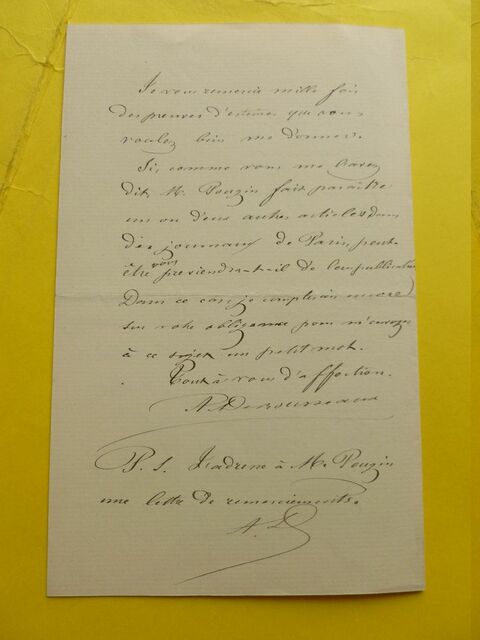 Je vous remercie mille fois
des preuves d'estime que vous
voulez bien me donner.
Si, comme vous me l'avez
dit, M. Pougin fait paraître
un ou deux autres articles dans
des journaux de Paris, peut-
être vous previendra-t-il de leur publication
Dans ce cas, je compterais encore
sur votre obligeance pour m'envoyer
à ce sujet un petit mot.
Tout à vous d'affection.
P. S. J'adresse à M. Pougin
une lettre de remerciements.
A. D